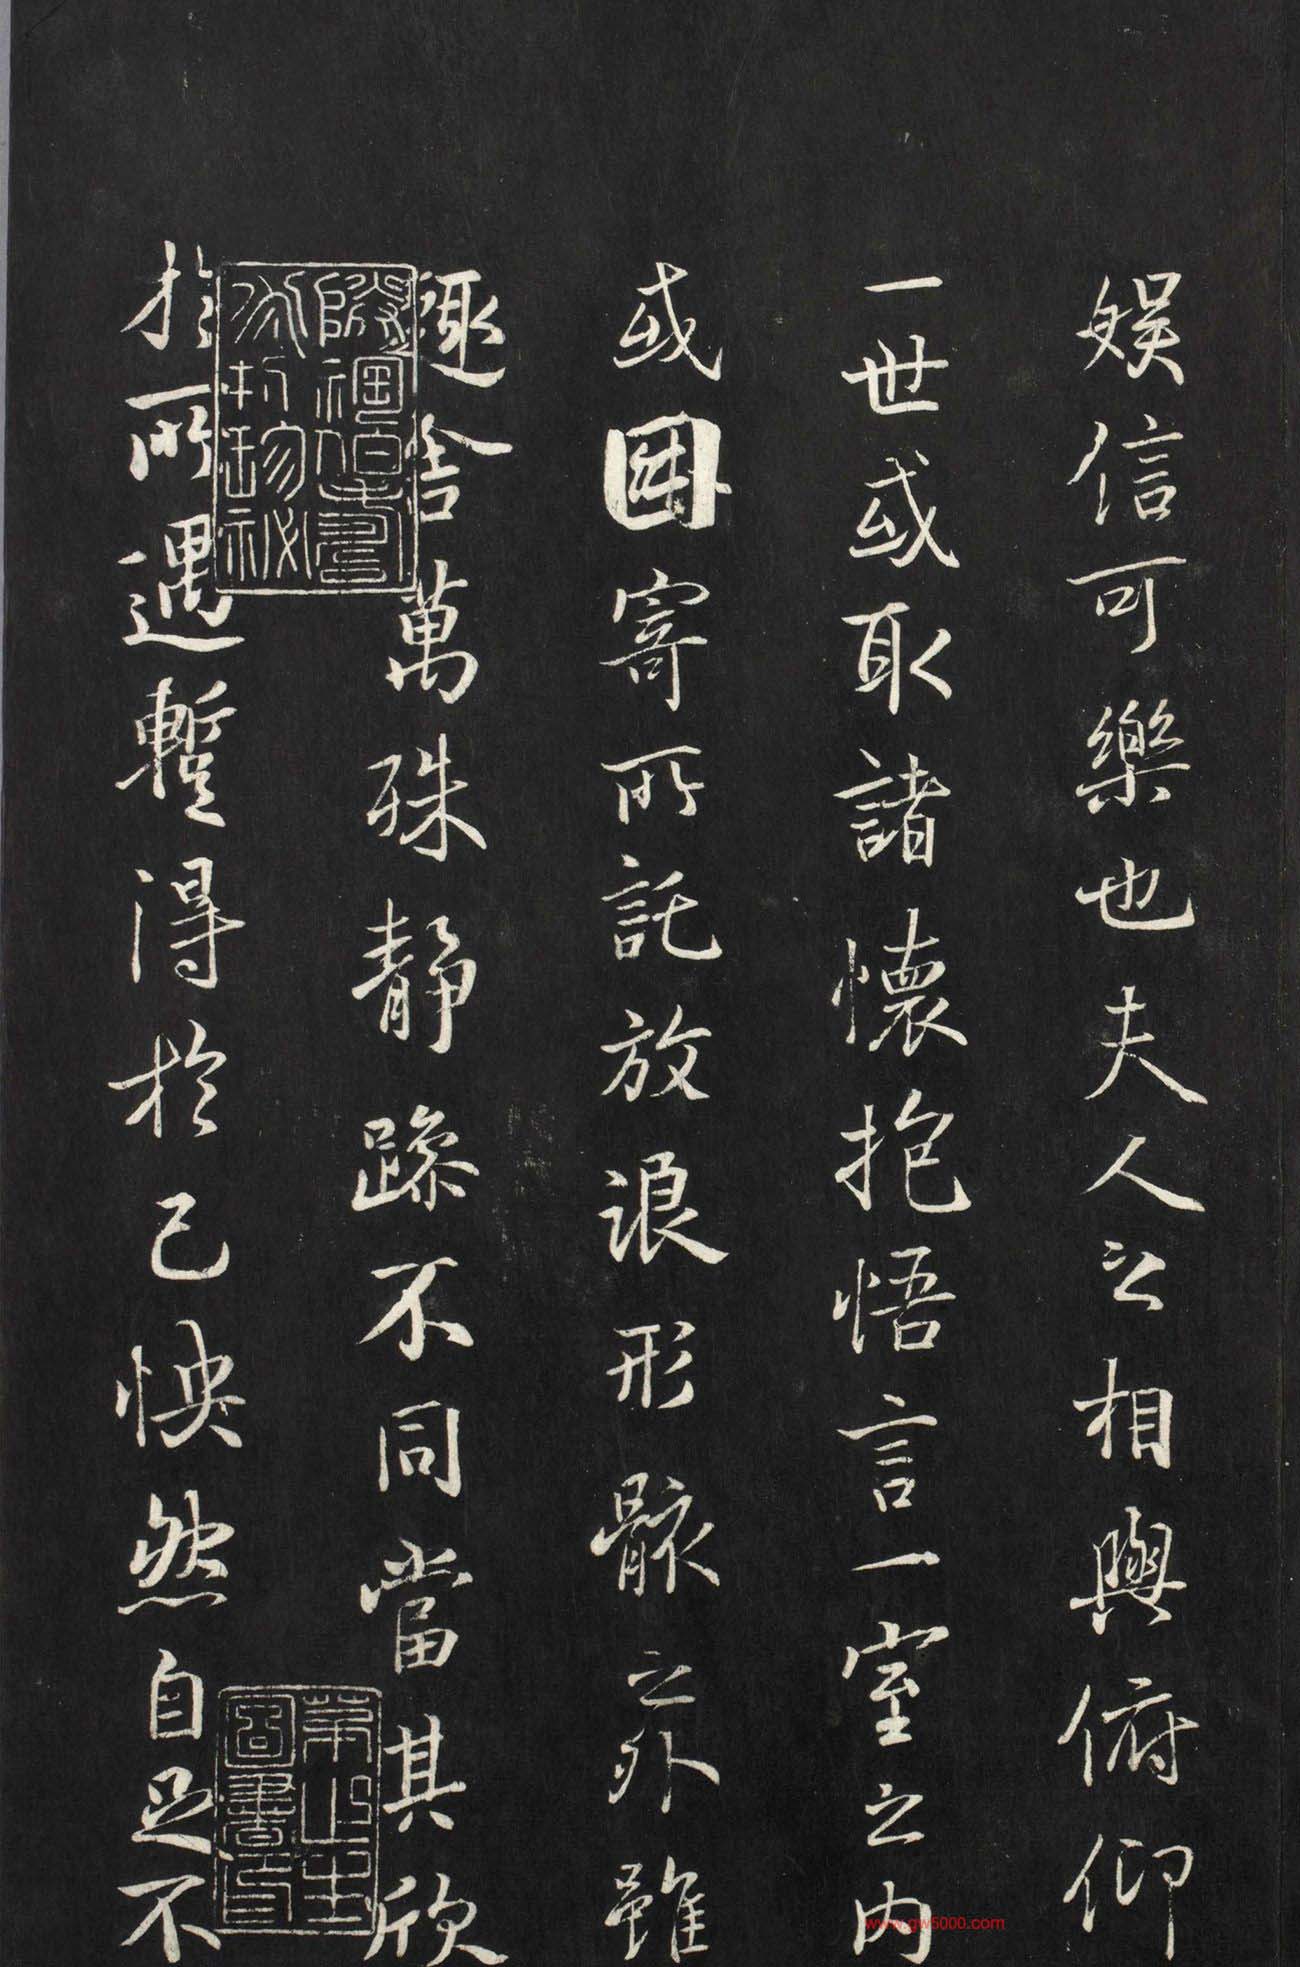 娱信可樂也夫人之相與俯仰
一世或取諸懷抱悟言一室之内
或因寄所託放浪形骸之外雖
趣舍萬殊静躁不同當其欣
於所遇蹔得於己怏然自足不
www.gw5000.com